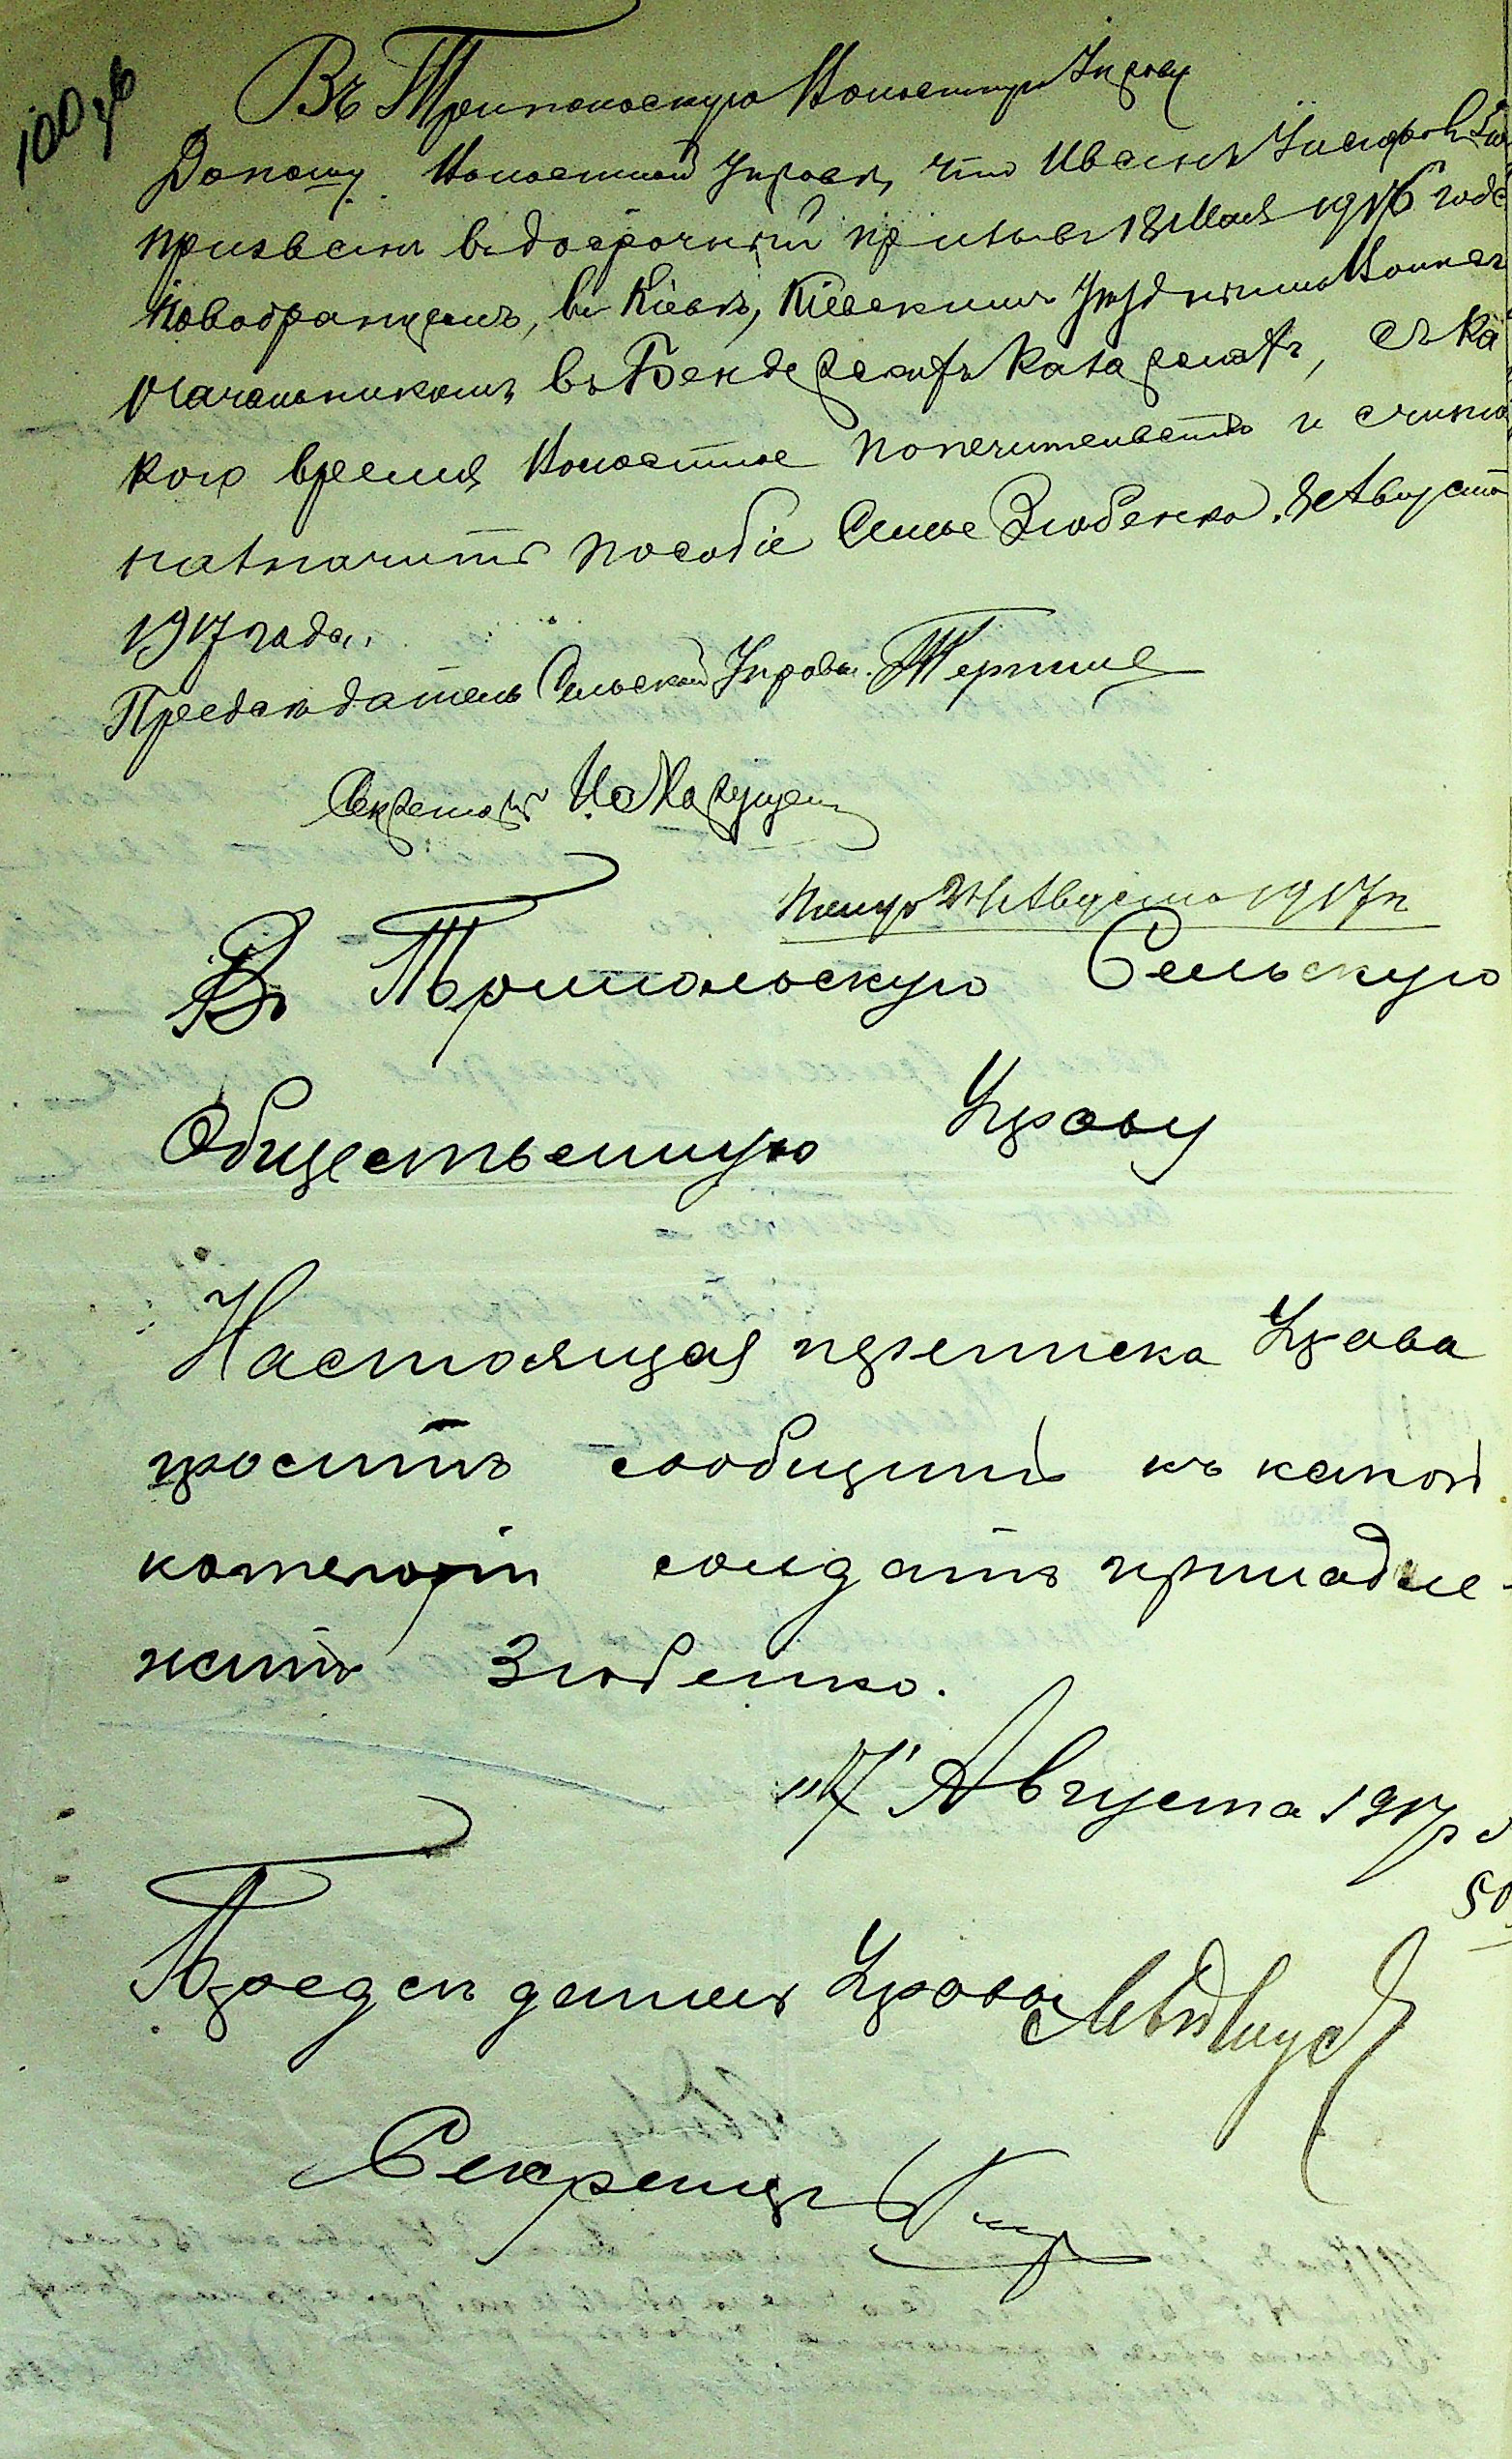 Въ Трипольскую Волостную Управу
Доношу Волостной Управѣ, что Иванъ
призванъ въ досрочный призывъ 18 Мая 1916 года
Новобранцемъ, въ Кіевѣ, Кіевскимъ Уѣзднымъ Воинск
Начальникомъ, въ Бендерскихъ Казармахъ, съ Ка
кого время Волостное попечительство и
назначить пособіе Семье Зюбенко. Августа
1917 года.
Председатель Сельской Управы
Секретарь
Августа 1917 г
Въ Трипольскую Сельскую
Общественную Управу
Настоящая переписка Управа
проситъ сообщить къ какой
категоріи солдатъ принадле-
житъ Зюбенко.
"7" Августа 1917
Предсѣдатель Управы
Секретарь